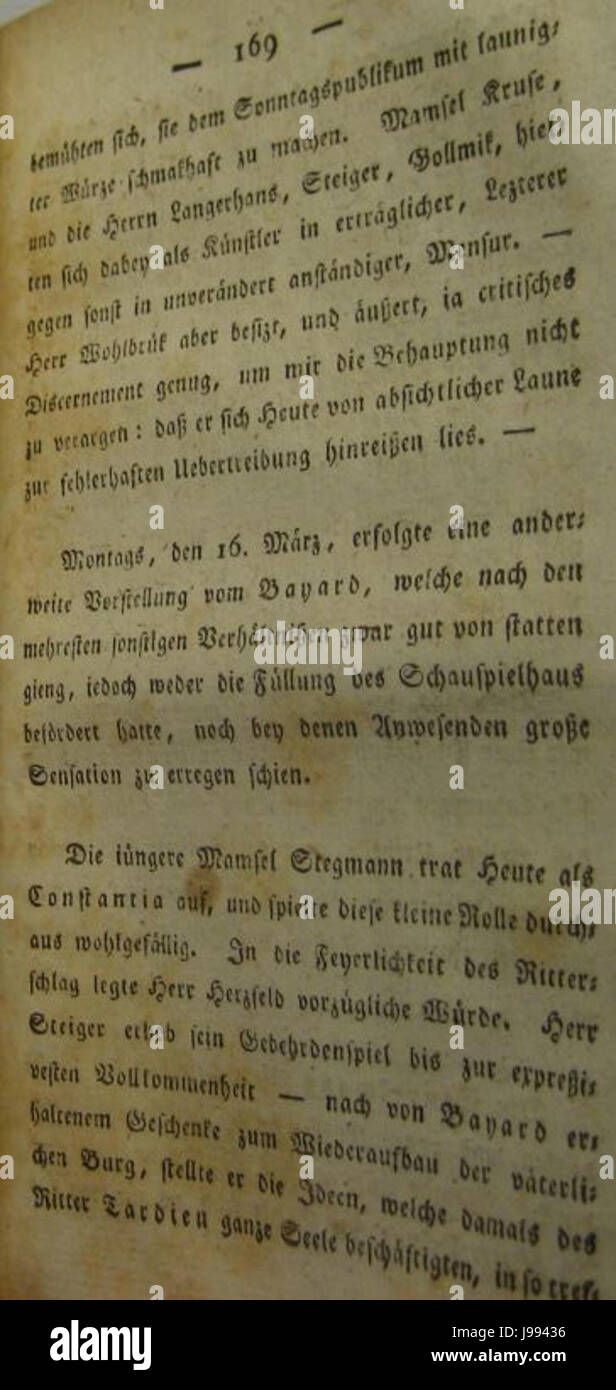 — 169 —
bemühten sich, sie dem Sonntagspublikum mit launig-
ter Würze schmakhaft zu machen. Mamsel Kruse,
und die Herrn Langerhans, Steiger, Gollmik, hiel-
ten sich dabey als Künstler in erträglicher, Lezterer
gegen sonst in unverändert anständiger, Mensur. —
Herr Wohlbrük aber besizt, und äußert, ia critisches
Discernement genug, um mir die Behauptung nicht
zu verargen: daß er sich Heute von absichtlicher Laune
zur fehlerhaften Uebertreibung hinreißen lies. —
Montags, den 16. März, erfolgte eine ander-
weite Vorstellung vom Bayard, welche nach den
mehresten sonstigen Verhältnißen zwar gut von statten
gieng, iedoch weder die Füllung des Schauspielhaus
befördert hatte, noch bey denen Anwesenden große
Sensation zu erregen schien.
Die iüngere Mamsel Stegmann trat Heute als
Constantia auf, und spielte diese kleine Rolle durch-
aus wohlgefällig. In die Feyerlichkeit des Ritter-
schlag legte Herr Herzfeld vorzügliche Würde. Herr
Steiger erhob sein Gebehrdenspiel bis zur expreßi-
vesten Vollkommenheit — nach von Bayard er-
haltenem Geschenke zum Wiederaufbau der väterli-
chen Burg, stellte er die Ideen, welche damals des
Ritter Tardieu ganze Seele beschäftigten, in so tref-
alamy
Image ID: J99436
www.alamy.com